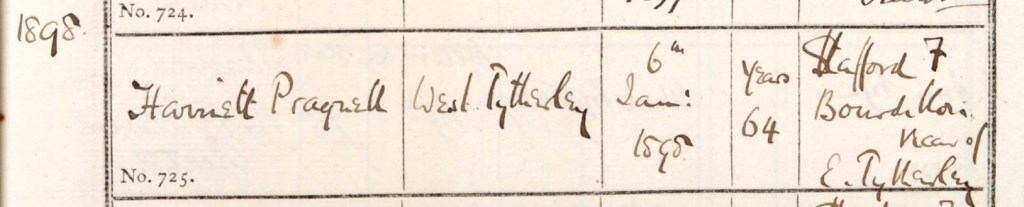 No. 724.
1898.
Harriett Pragnell
West Tytherley
6th
Jany:
1898
years
64
Stafford F
Bourdillon.
Vicar of
E. Tytherley
No. 725.